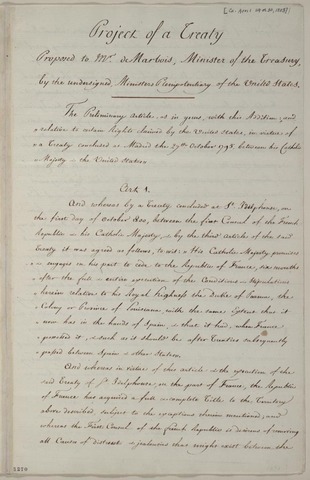 [Ca. April 29 or 30, 1803]
Project of a Treaty
Proposed to Mr. de Marbois, Minister of the Treasury,
by the undersigned Ministers Plenipotentiary of the United States.
The Preliminary Article, as in yours, with the Addition, and
relative to certain Rights claimed by the United States, in virtue of
a Treaty concluded at Madrid the 27th October 1795 between his Catholic
Majesty & the United States
Art. 1.
And whereas by a Treaty concluded at St. Ildephonso, on
the first day of October 1800, between the first Consul of the French
Republic & his Catholic Majesty, & by the third Article of the said
Treaty it was agreed as follows, to wit: His Catholic Majesty promises
& engages on his part to cede to the Republic of France, six months
after the full & entire execution of the Conditions & Stipulations
herein relative to his Royal Highness the Duke of Parma, the
Colony or Province of Louisiana with the same Extent that it
now has in the hands of Spain, & that it had, when France
possessed it, & such as it should be after Treaties subsequently
passed between Spain & other States.
And whereas in virtue of this article & the execution of the
said Treaty of St. Ildephonso, on the part of France, the Republic
of France has acquired a full & complete Title to the Territory
above described subject to the exceptions therein mentioned, and
whereas the First Consul of the French Republic is desirous of removing
all Cause of distrust & jealousies that might exist between the
1210